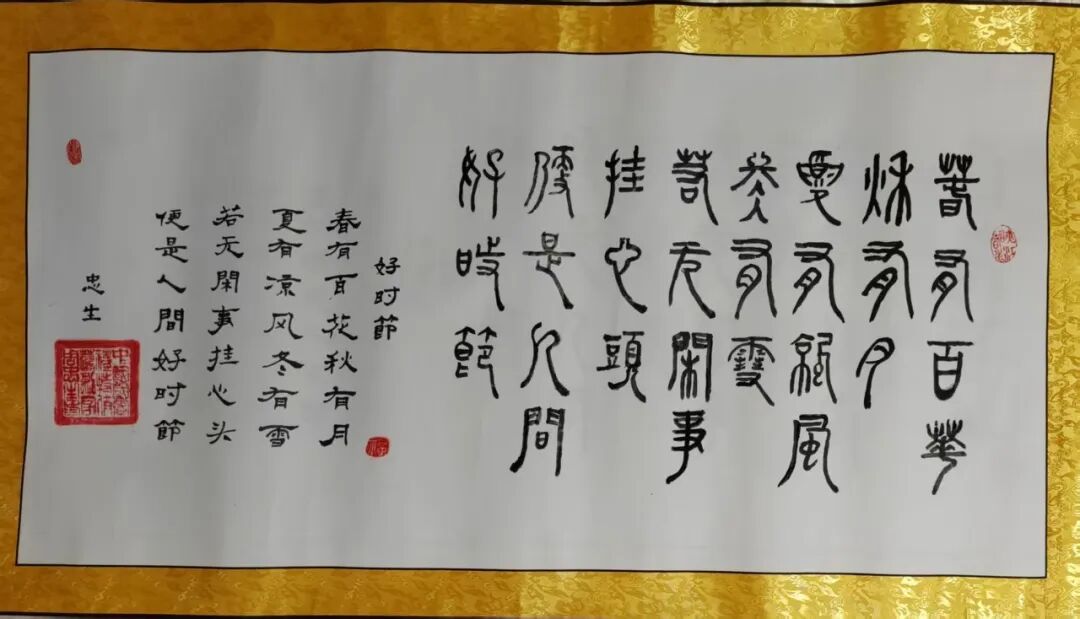 春有百華
秋有月
夏有凉風
冬有雪
若无閑事
挂心頭
便是人間
好時節
好时節
春有百花秋有月
夏有凉风冬有雪
若无閑事挂心头
便是人間好时節
忠生